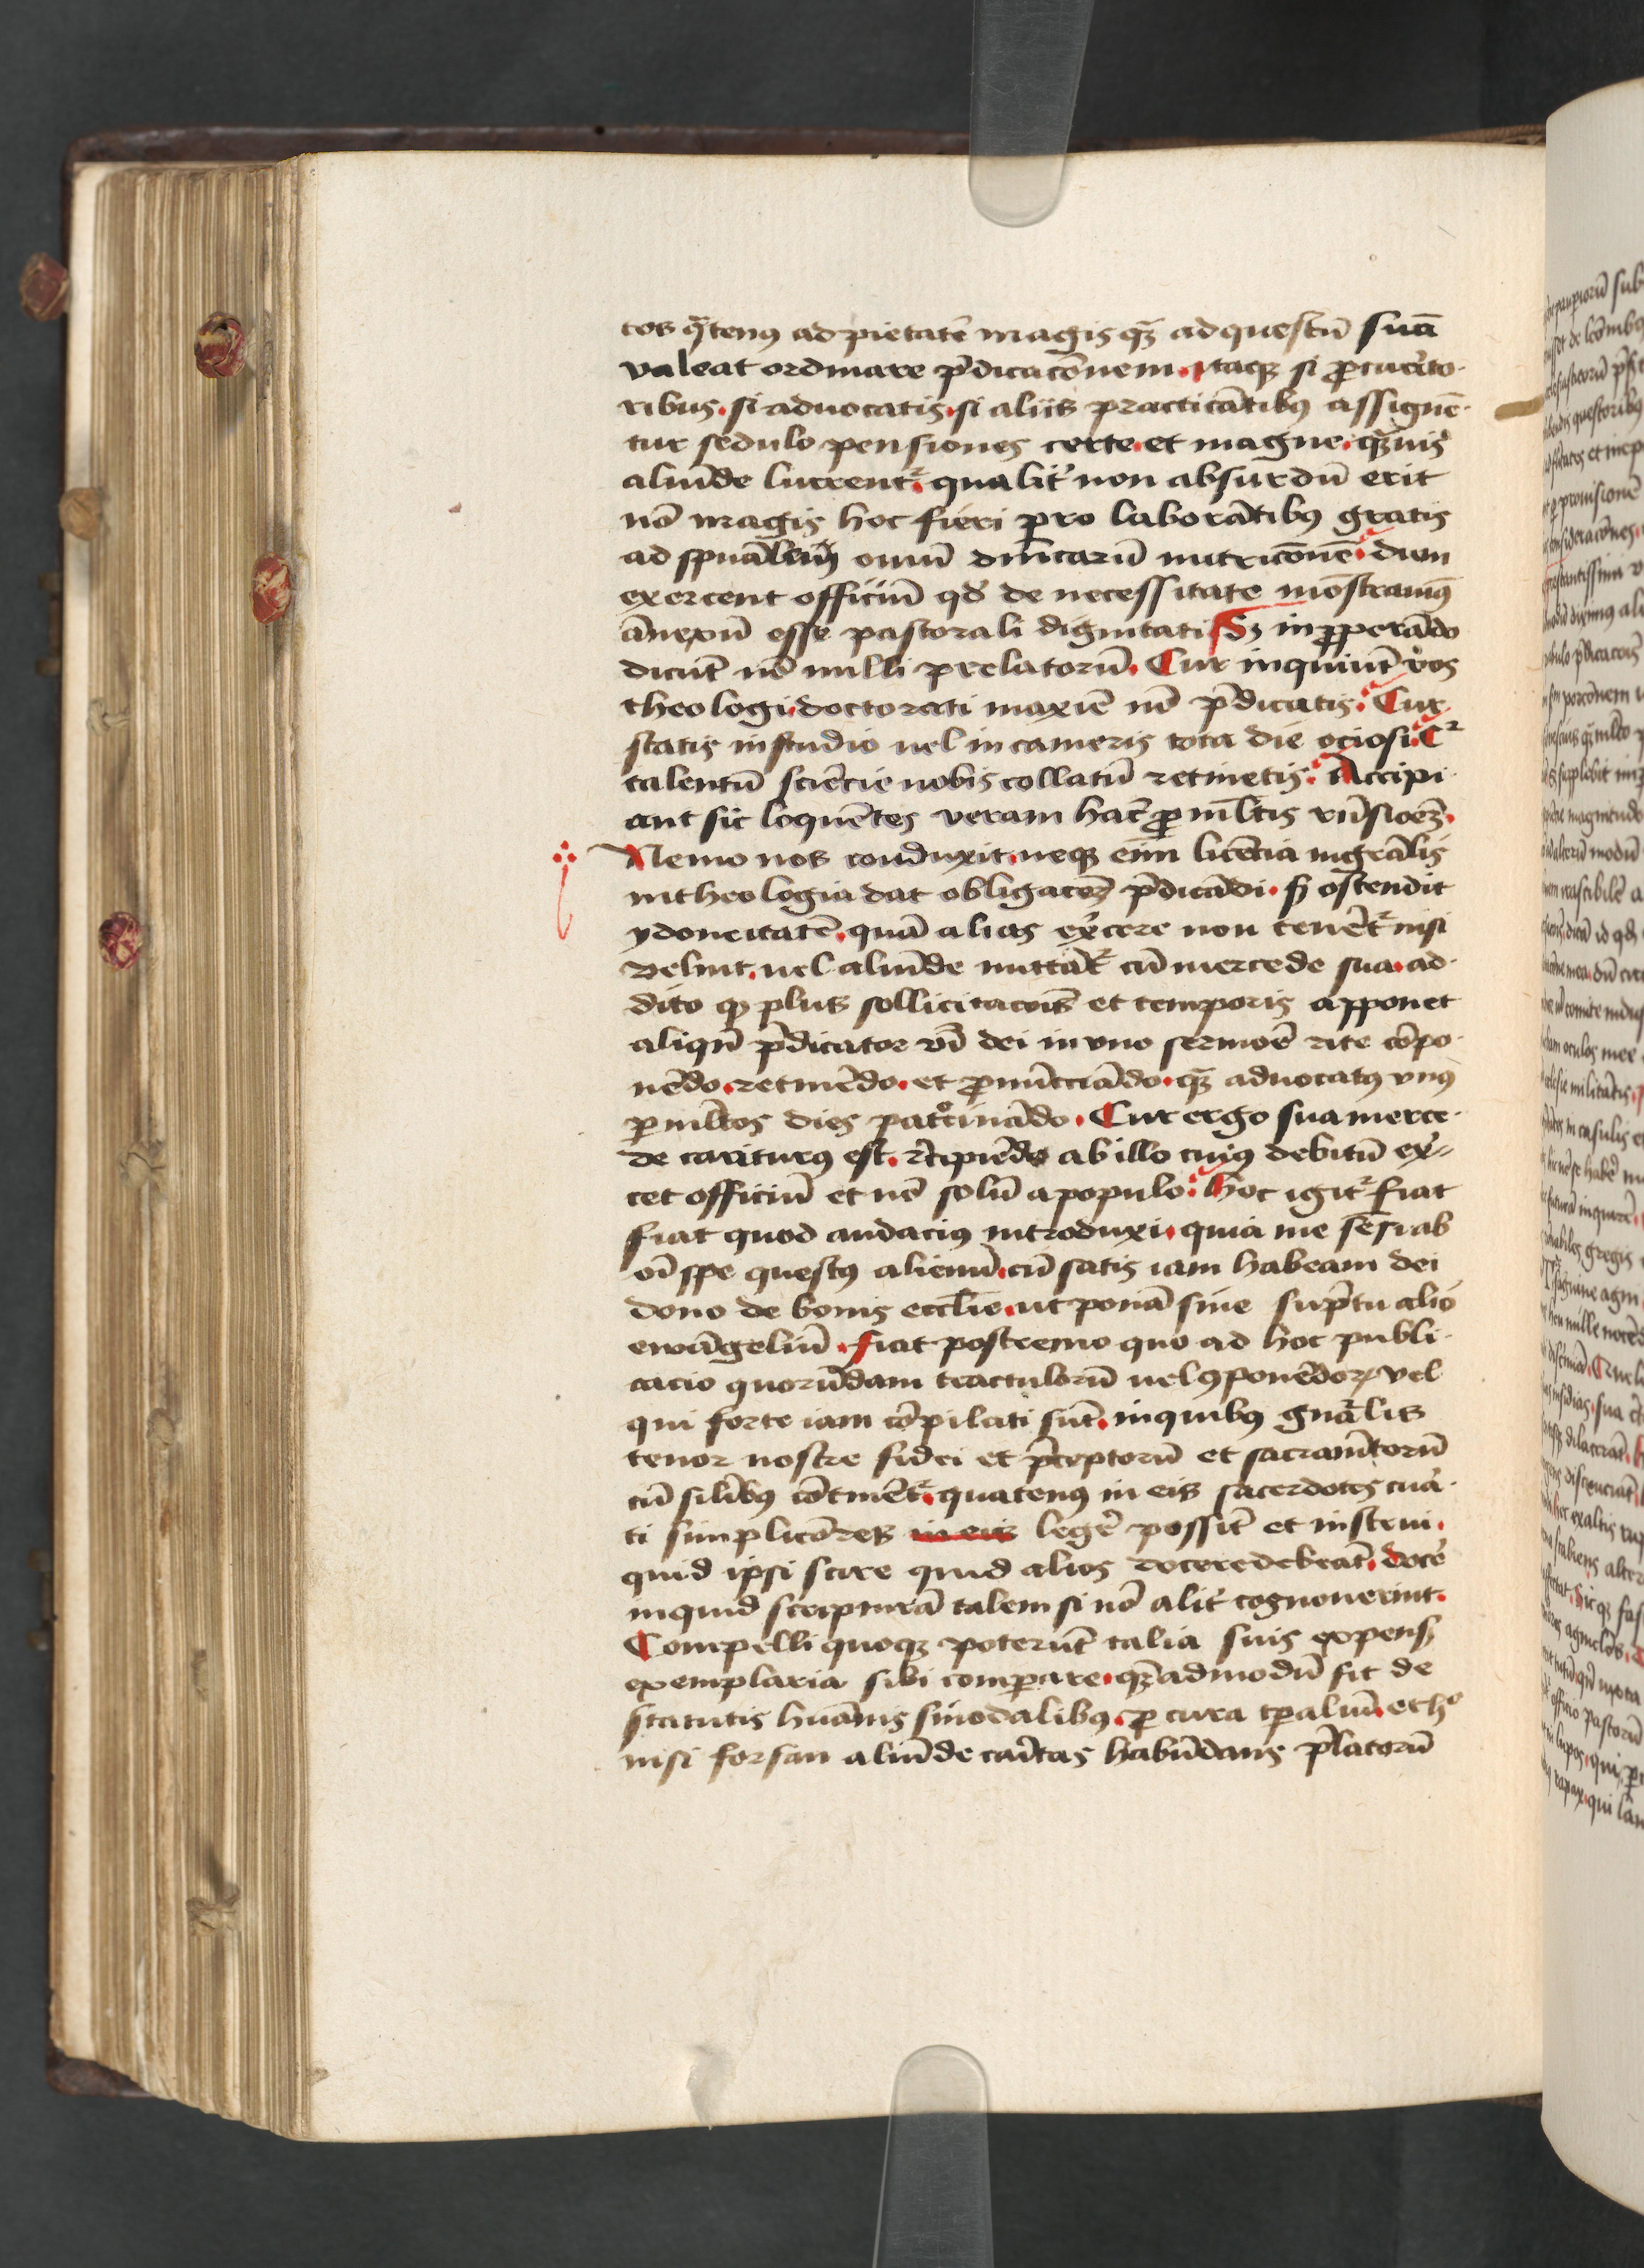 tos qͣtenꝰ ad pietatē magis qȝ ad questū suā
valeat ordinare p̄dicacōnem. Itaqȝ si ꝓcurato-
ribus. si aduocatis. si aliis practicātibꝰ assignē-
tur sedulo pensiones certe. et magne. qȝuis
aliūde lucrentᷣ. qualit᷑ non absurdū erit
nō magis hoc fieri pro laborātibꝰ gratis
ad spūalem oīm dn̄icarū nutricōnē. dum
exercent officiū qđ de necessitate mōstrauimꝰ
ānexū esse pastorali dignitati Sȝ inꝓperādo
dicūt nō nulli prelatorū. Cur inquiūt vos
theologi. doctorati maxīe nō p̄dicatis. Cur
statis in studio uel in cameris tota die ociosi. Cᷣ
talentū sciētie uobis collatū retinetis. Accipi-
ant sic loquētes veram hāc ꝓ ml̄tis rn̄sioēȝ.
Nemo nos conduxit. neqȝ eīm licētia mgrālis
in theologia dat obligacōȝ p̄dicādi. sȝ ostendit
ydoneitatē. quā alias ex̄cere non tenētᷣ nisi
velint. uel aliūde mittātᷣ cū mercede sua. ad-
dito qȝ plus sollicitacōis et temporis apponet
aliqn̄ p̄dicator v̄bi dei in vno sermōe rite cōpo-
nēdo. retinēdo. et ꝓnūcciādo. qȝ aduocatꝰ vnꝰ
ꝑ ml̄tos dies pat͛cinādo. Cur ergo sua merce-
de cariturꝰ est. r̄cipiēdo ab illo cuiꝰ debitū ex̄-
cet officiū et nō solū a populo. Hoc igitᷣ fiat
fiat quod audacius introduxi. quia me sēsi ab
oī spe questꝰ alienū. cū satis iam habeam dei
dono de bonis eccl̄ie. ut ponā sine sūptu alio
ewāgeliū. Fiat postremo quo ad hoc publi-
cacio quorūdam tractulorū uel ꝯponēdoꝝ vel
qui forte iam cōpilati sūt. in quibꝰ gn̄alis
tenor nostre fidei et p̄ceptorū et sacramētorū
cū sil̄ibꝰ cōtinētᷣ. quatenꝰ in eis sacerdotes cura-
ti simpliciōres in eis leger̄ possīt et instrui.
quid ipsi scire quid alios docere debeāt. doce
inquid scripturā talem si nō alit᷑ cognouerint.
Compelli quoqȝ poterūt talia suis expens̄
exemplaria sibi comparare. qȝadmodū fit de
statutis huānis sinodalibꝰ. ꝓ cura tꝑaliū. et hᵒ
nisi forsan aliūde caritas habūdans p̄latorū